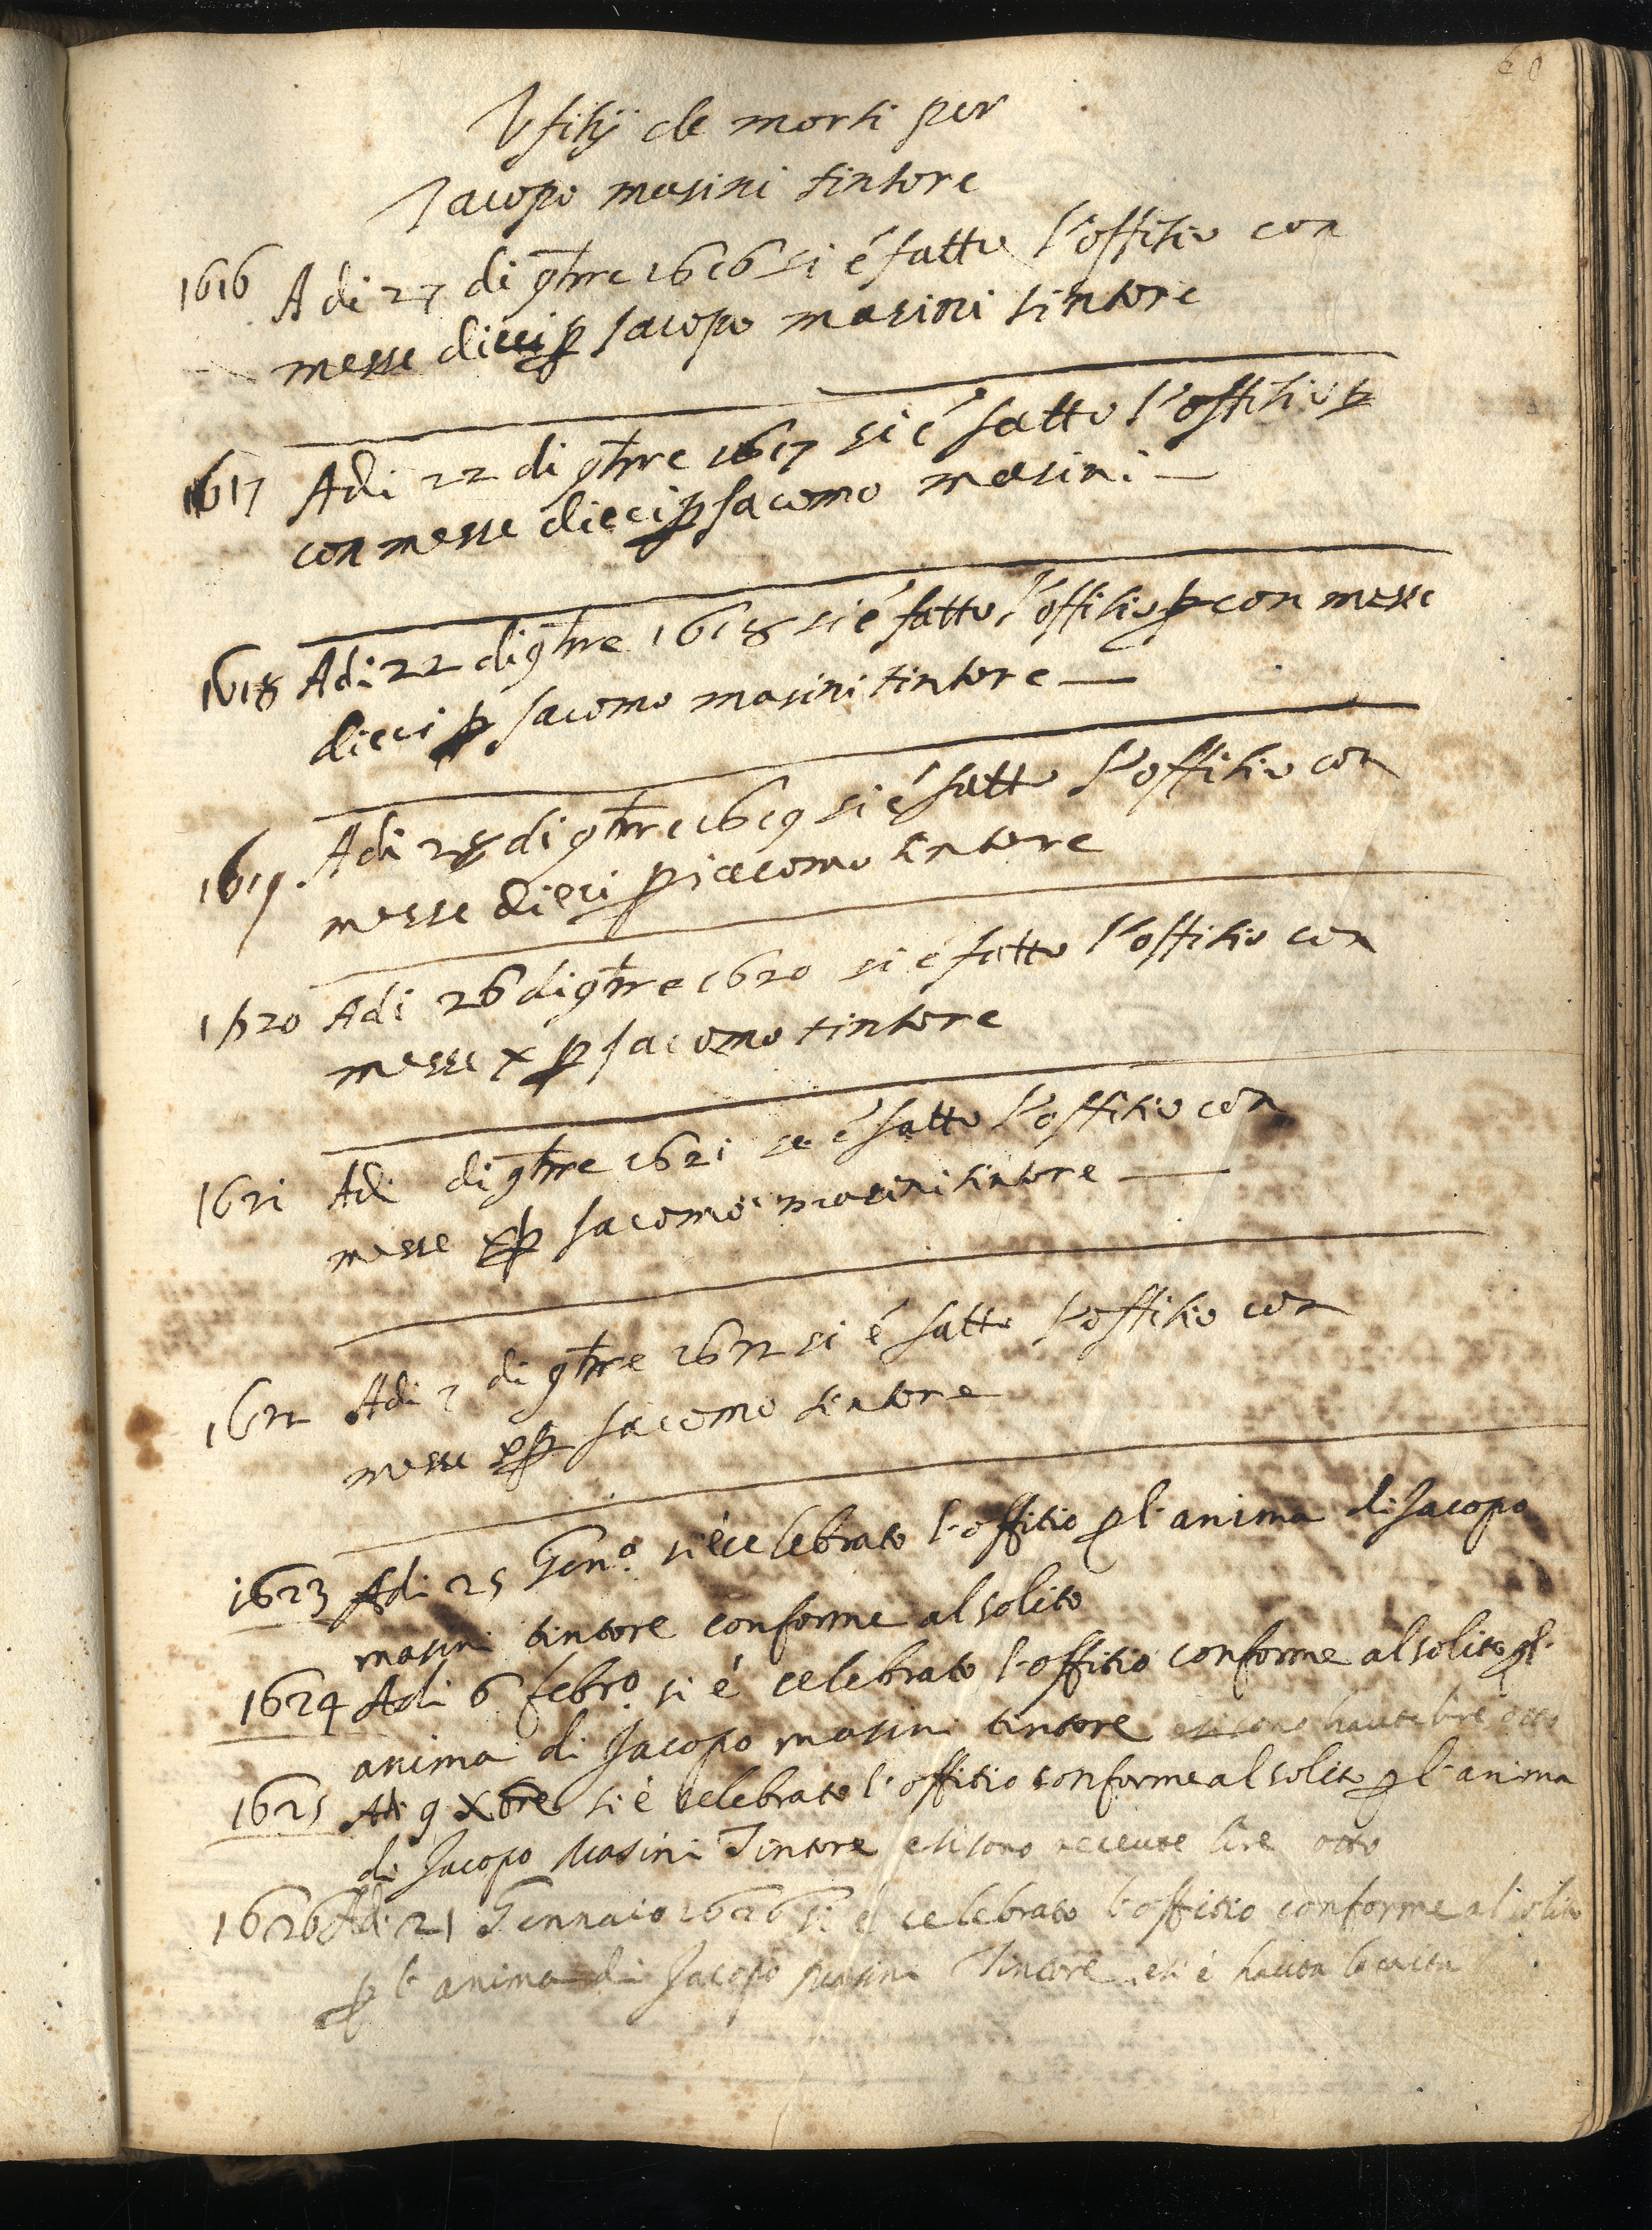 60
Vfitij de morti per
Jacopo masini tintore
1616 A di 27 di 9bre 1616 si é fatto l'offitio con
messe dieci p Jacopo masini tintore
1617 Adi 22 di 9bre 1617 si é fatto l'offitio p
con messe dieci p Jacomo masini
1618 Adi 22 di 9bre 1618 si é fatto l'offitio p con messe
dieci p Jacomo masini tintore
1619. Adi 28 di 9bre 1619 si é fatto l'offitio con
messe dieci p iacomo tintore
1620 Adi 26 di 9bre 1620 si é fatto l'offitio con
messe x p Jacomo tintore
1621 Adi di 9bre 1621 se é fatto l'offitio con
messe x p Jacomo masini tintore
1622 Adi 2 di 9bre 1622 si é fatto l'offitio con
messe x p Jacomo tintore
1623 Adi 25 Gen.o si é celebrato l'offitio p l'anima di Jacopo
masini tintore conforme al solito
1624 Adi 6 febr.o si é celebrato l'offitio conforme al solito p l'
anima di Jacopo masini tintore e si sono haute lire otto
1625 Adi 9 Xbre si é celebrato l'offitio conforme al solito p l'anima
di Jacopo Masini Tintore e si sono receute lire otto
1626 Adi 21 Gennaio 1626 si é celebrato l'offitio conforme al solito
p l'anima di Jacopo Masini Tintore, e si é hauta